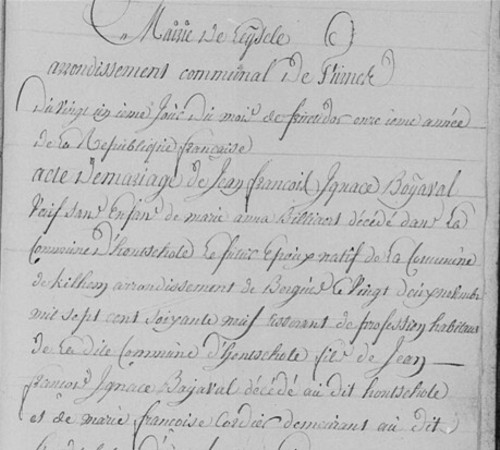 Mairie De Leysele
arrondissement communal De Furnes
Du vingt un ieme jour Du mois de fructidor onz ieme année
De La Republique française
acte De mariage De Jean francois Ignace Bayaval
Veuf sans Enfans de marie anna décédé dans La
Commune D'hontschote Le futur Epoux natif de La Commune
de Killem arrondissement de Bergues Le Vingt deux novembre
mil sept cent soixante neuf de profession habitant
De La dite Commune d'Hontschote fils de Jean —
francois Ignace Bayaval décédé au dit hontschote
et de marie françoise Cordier demeurant au dit